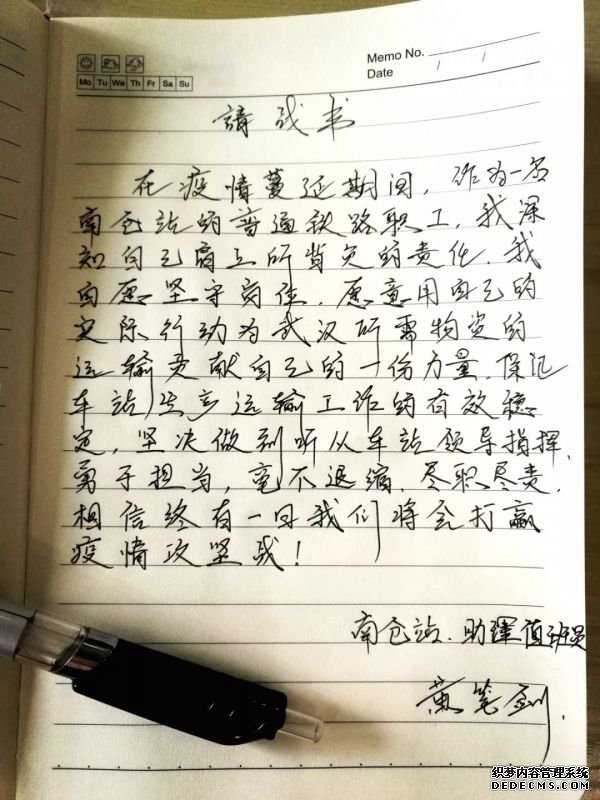 Memo No.
Mo Tu We Th Fr Sa Su
Date / /
請战书
在疫情蔓延期间，作为一名
南仓站的普通铁路职工，我深
知自己肩上所背负的责任，我
自愿坚守岗位，愿意用自己的
实际行动为武汉所需物资的
运输贡献自己的一份力量，保证
车站生产运输工作的有效稳
定，坚决做到听从车站领导指挥，
勇于担当，毫不退缩，尽职尽责，
相信终有一日我们将会打赢
疫情攻坚战！
南仓站、助理值班员
黄笔剑
织梦内容管理系统
DEDECMS.COM